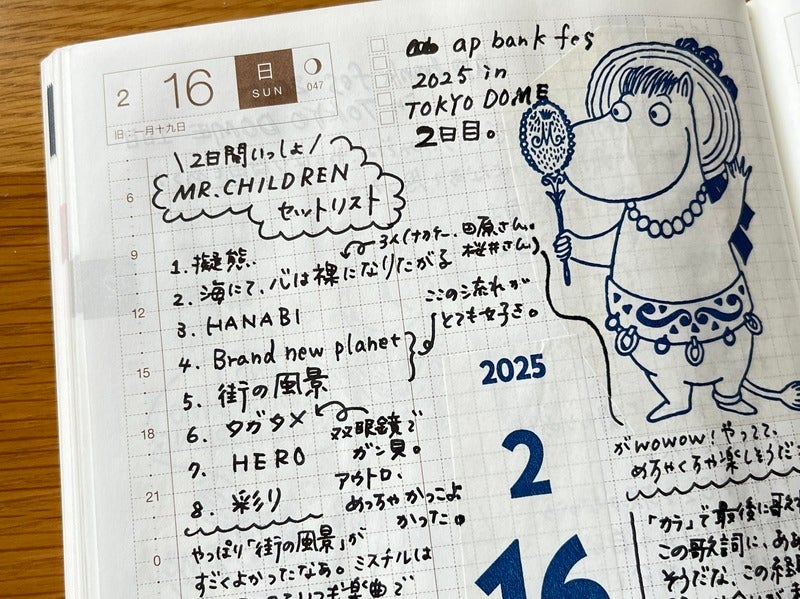 2 16 日 SUN 047
旧:一月十九日
ap bank fes
2025 in
TOKYO DOME
2日目。
\2日間いっしょ/
MR.CHILDREN
セットリスト
6
9
12
15
18
21
0
1. 擬態
2. 海にて、心は裸になりたがる
3人(ナカケー、田原さん。
桜井さん)
3. HANABI
4. Brand new planet
5. 街の風景
ここの流れが
とても好き。
6. タガタメ
7. HERO
8. 彩り
双眼鏡で
ガン見。
アウトロ、
めっちゃかっこよ
かった。
2025
2
16
がwowow!やってて、
めちゃくちゃ楽しそうだ
やっぱり「街の風景」が
すごくよかったなあ。ミスチルは
いつも楽曲で
「カラ」で最後に歌え
この歌詞に、ああ
そうだな、この経